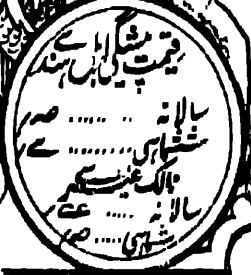 قیمت پیشگی اہل ہند سے
سالانہ ......
ششماہی ........
ممالک غیر سے
سالانہ .....
ششماہی .....